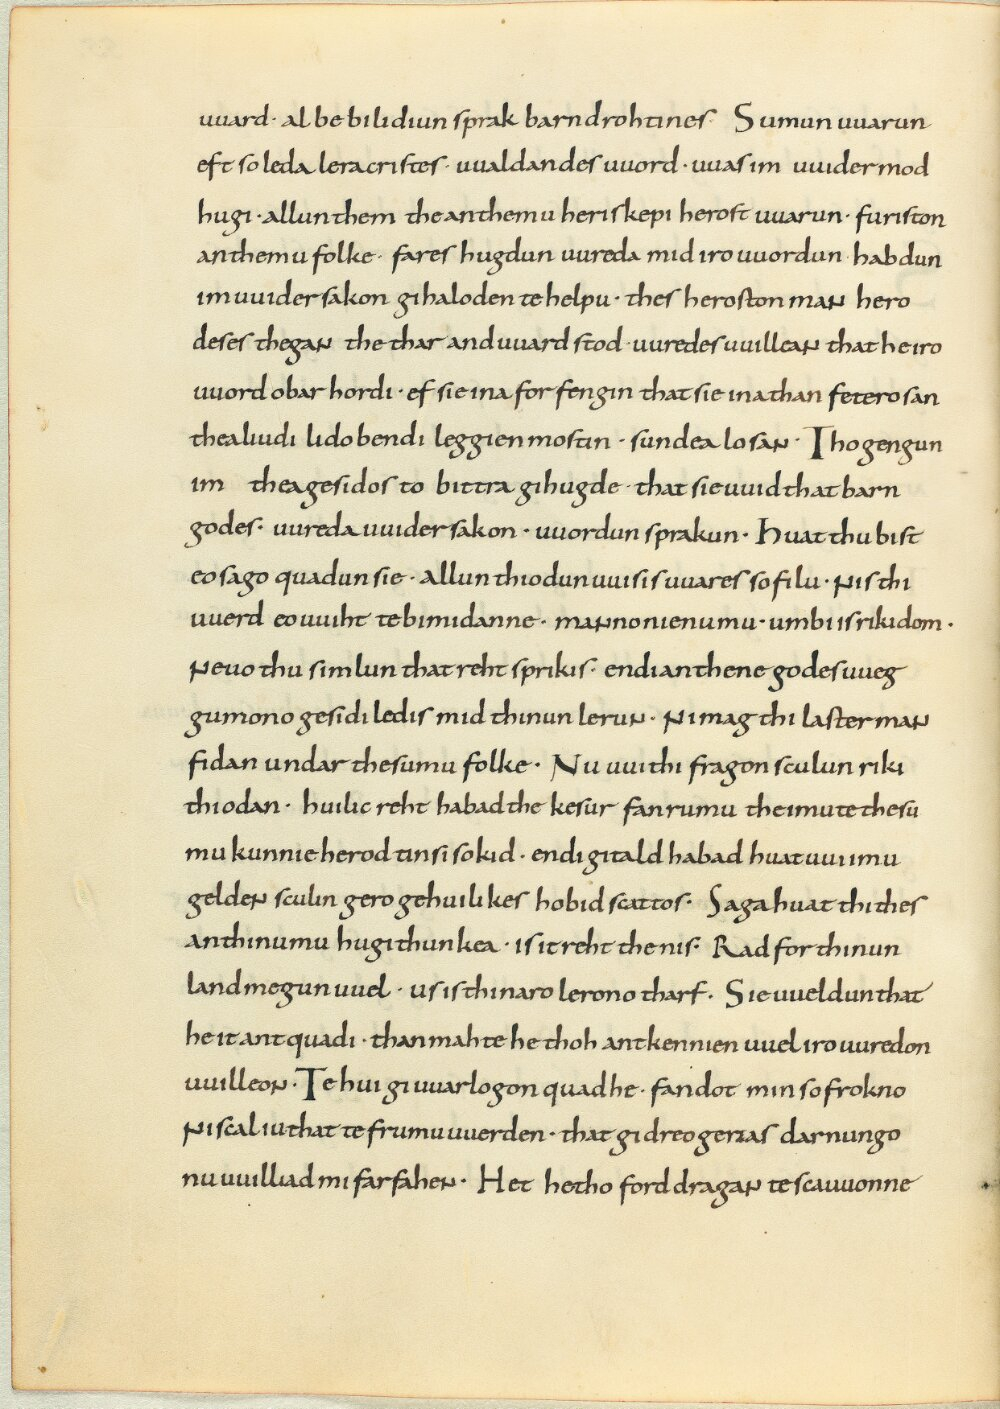 uuard· al be bilidiun sprak barn drohtines· Sumun uuarun
eft so leda lera cristes· uualdandes uuord· uuas im uuidermod
hugi· allun them the an themu heriskepi herost uuarun· furiston
an themu folke· fares hugdun uureda mid iro uuordun habdun
im uuidersakon gihaloden te helpu· thes heroston man hero
deses thegan the thar anduuard stod uuredes uuillean that he iro
uuord obar hordi· ef sie ina forfengin that sie ina than fetero san
thea liudi lidobendi leggien mostin· sundea losan· Tho gengun
im thea gesidos to bittra gihugde· that sie uuid that barn
godes· uureda uuidersakon· uuordun sprakun· Huat thu bist
eosago quadun sie· allun thiodun uuisis uuares so filu· Nis thi
uuerd eouuiht te bimidanne· manno nienumu· umbi is rikidom·
Neuo thu simlun that reht sprikis· endi an thene godes uueg
gumono gesidi ledis mid thinun lerun· Ni mag thi laster man
fidan undar thesumu folke· Nu uui thi fragon sculun riki
thiodan· huilic reht habad the kesur fan rumu the imu te thesu
mu kunnie herod tinsi sokid· endi gitald habad huat uui imu
gelden sculin gero gehuilikes hobidscattos· Saga huat thi thes
an thinumu hugi thunkea· is it reht the nis· Rad for thinun
landmegun uuel· us is thinaro lerono tharf· Sie uueldun that
he it antquadi· than mahte he thoh antkennien uuel iro uuredon
uuilleon· Te hui gi uuarlogon quad he· fandot min so frokno
Ni scal iu that te frumu uuerden· that gi dreogerias darnungo
nu uuilliad mi farfahen· Het he tho ford dragan te scauuonne